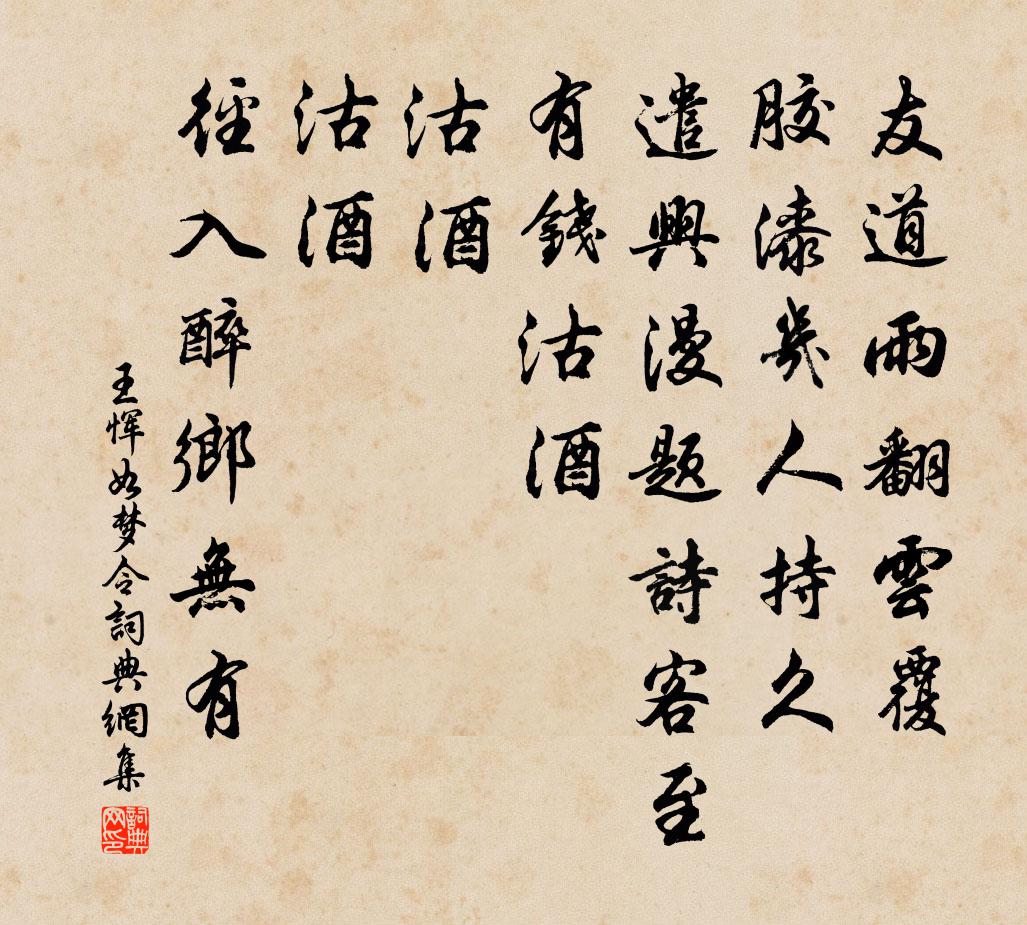 友道雨翻雲覆
膠漆幾人持久
遣興漫題詩客至
有錢沽酒
沽酒
沽酒
徑入醉鄉無有
王恽如梦令詞典網集
詞典网印